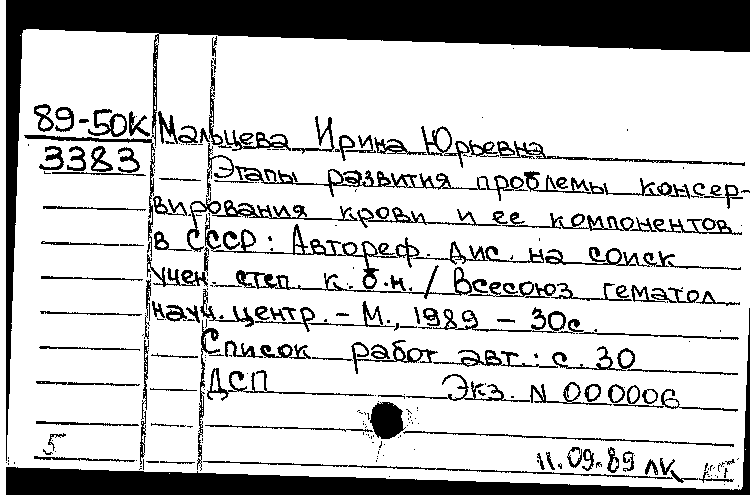 89-50К Мальцева Ирина Юрьевна
3383 Этапы развития проблемы консер-
вирования крови и ее компонентов
в СССР: Автореф. дис. на соиск
учен. степ. к.б.н. / Всесоюз гематол
науч. центр. – М., 1989 – 30с.
Список работ авт.: с. 30
ДСП Экз. N 000006
5 11.09.89 ЛК КТ